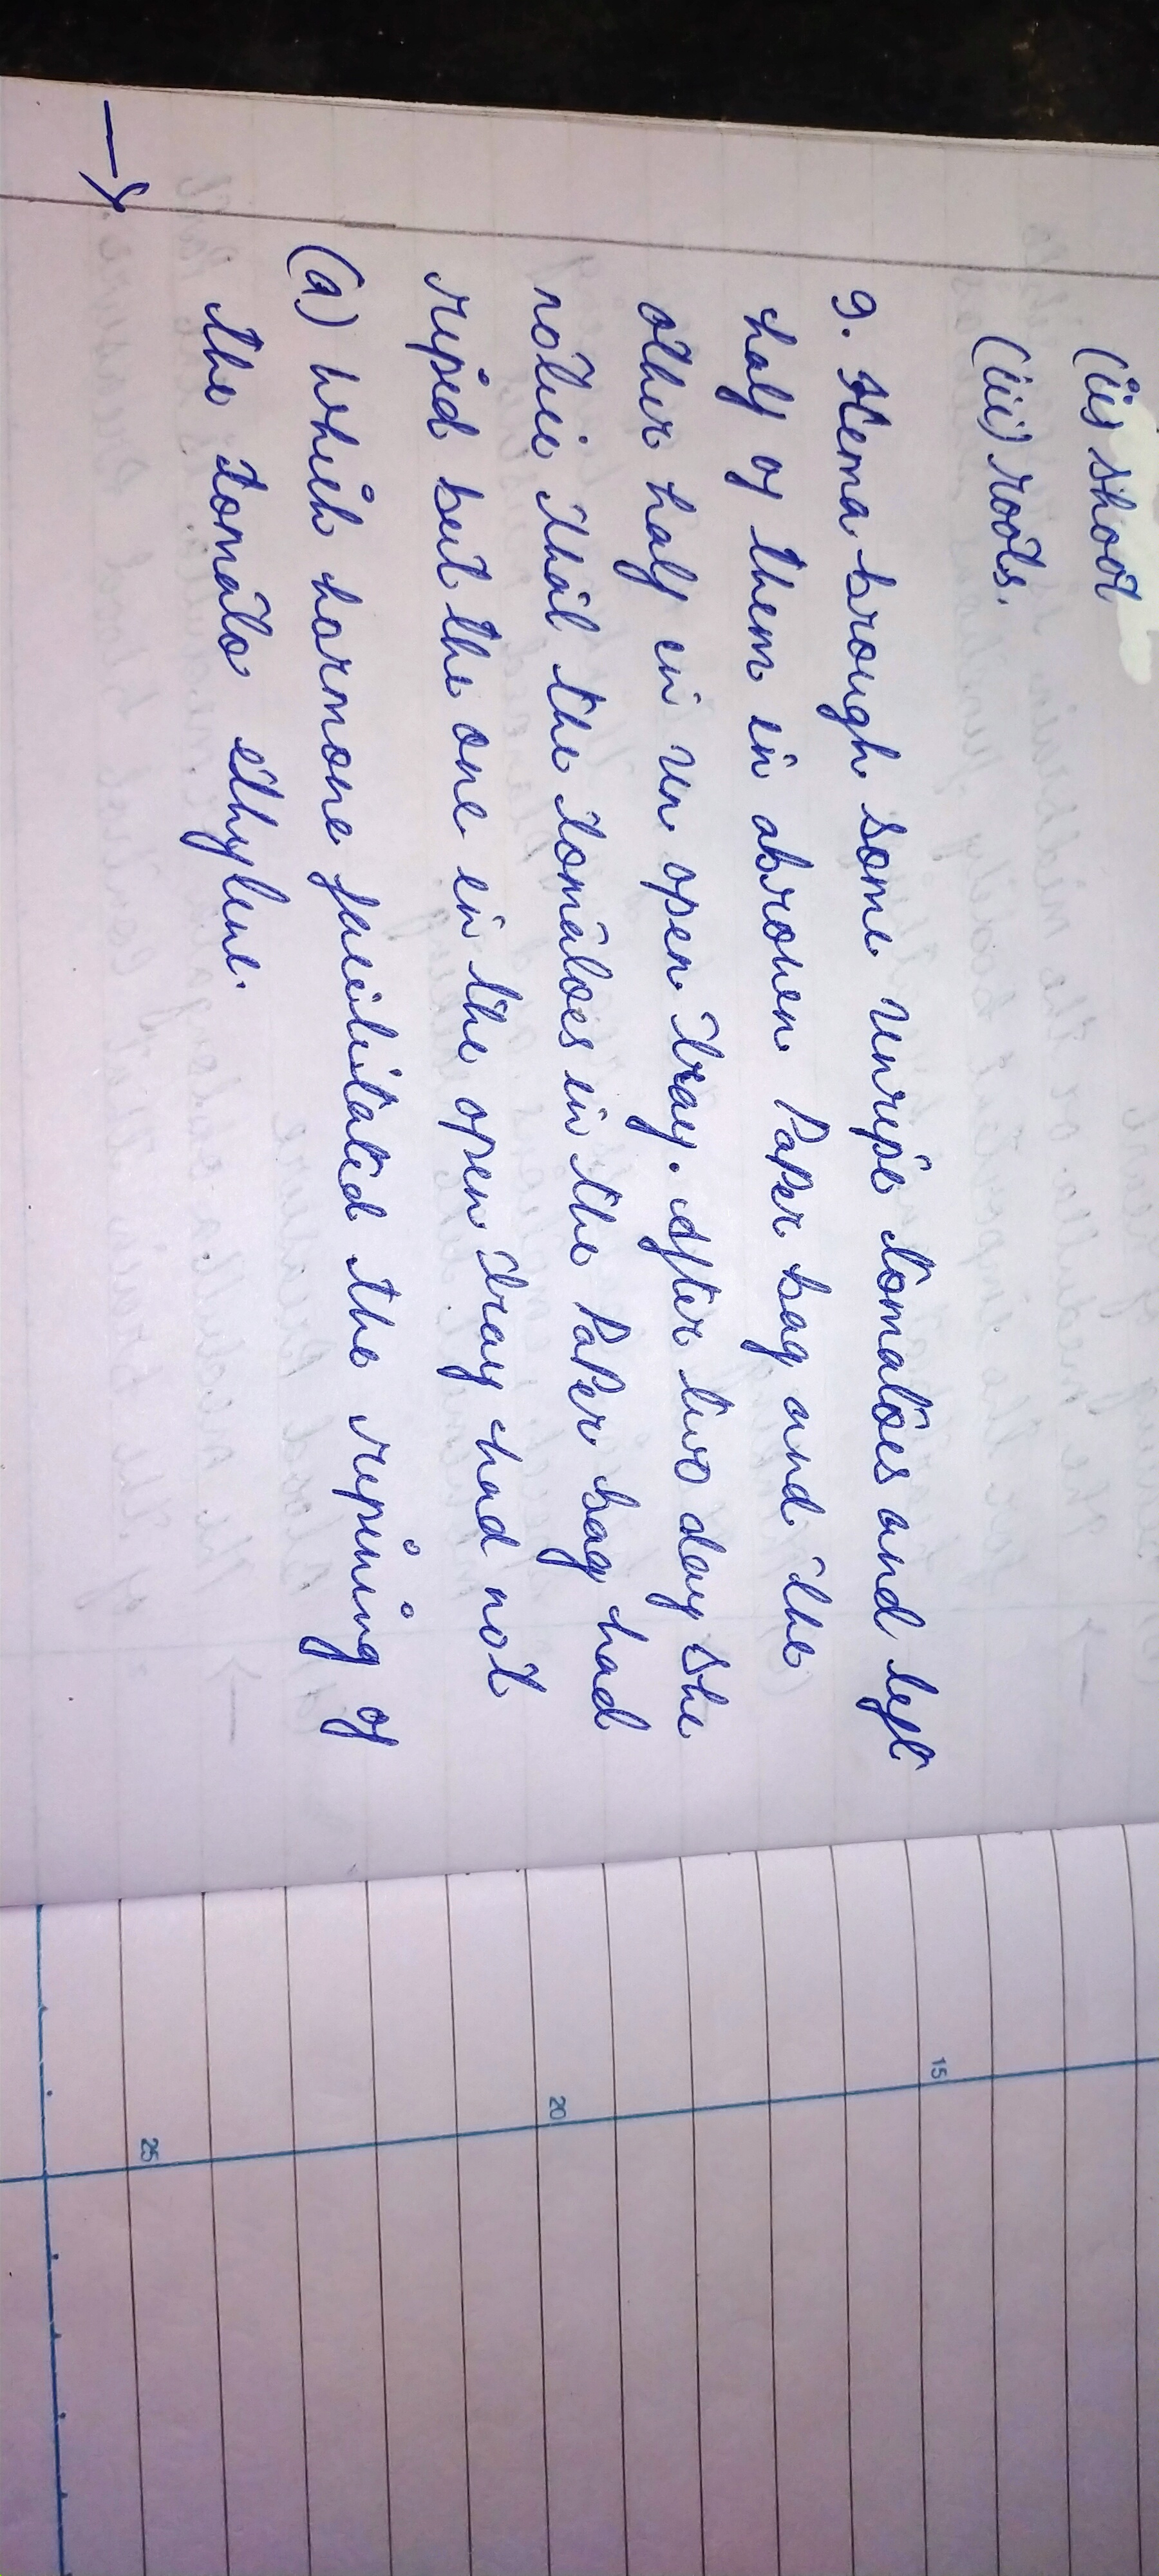 (ii) shoot
(iii) roots.
9. Hema brough some unripe tomatoes and left
half of them in abrown Paper bag and the
other half in un open tray. After two day she
notice that the tomatoes in the Paper bag had
riped but the one in the open tray had not
(a) which hormone facilitated the ripining of
the tomato ethylene.
15
20
25